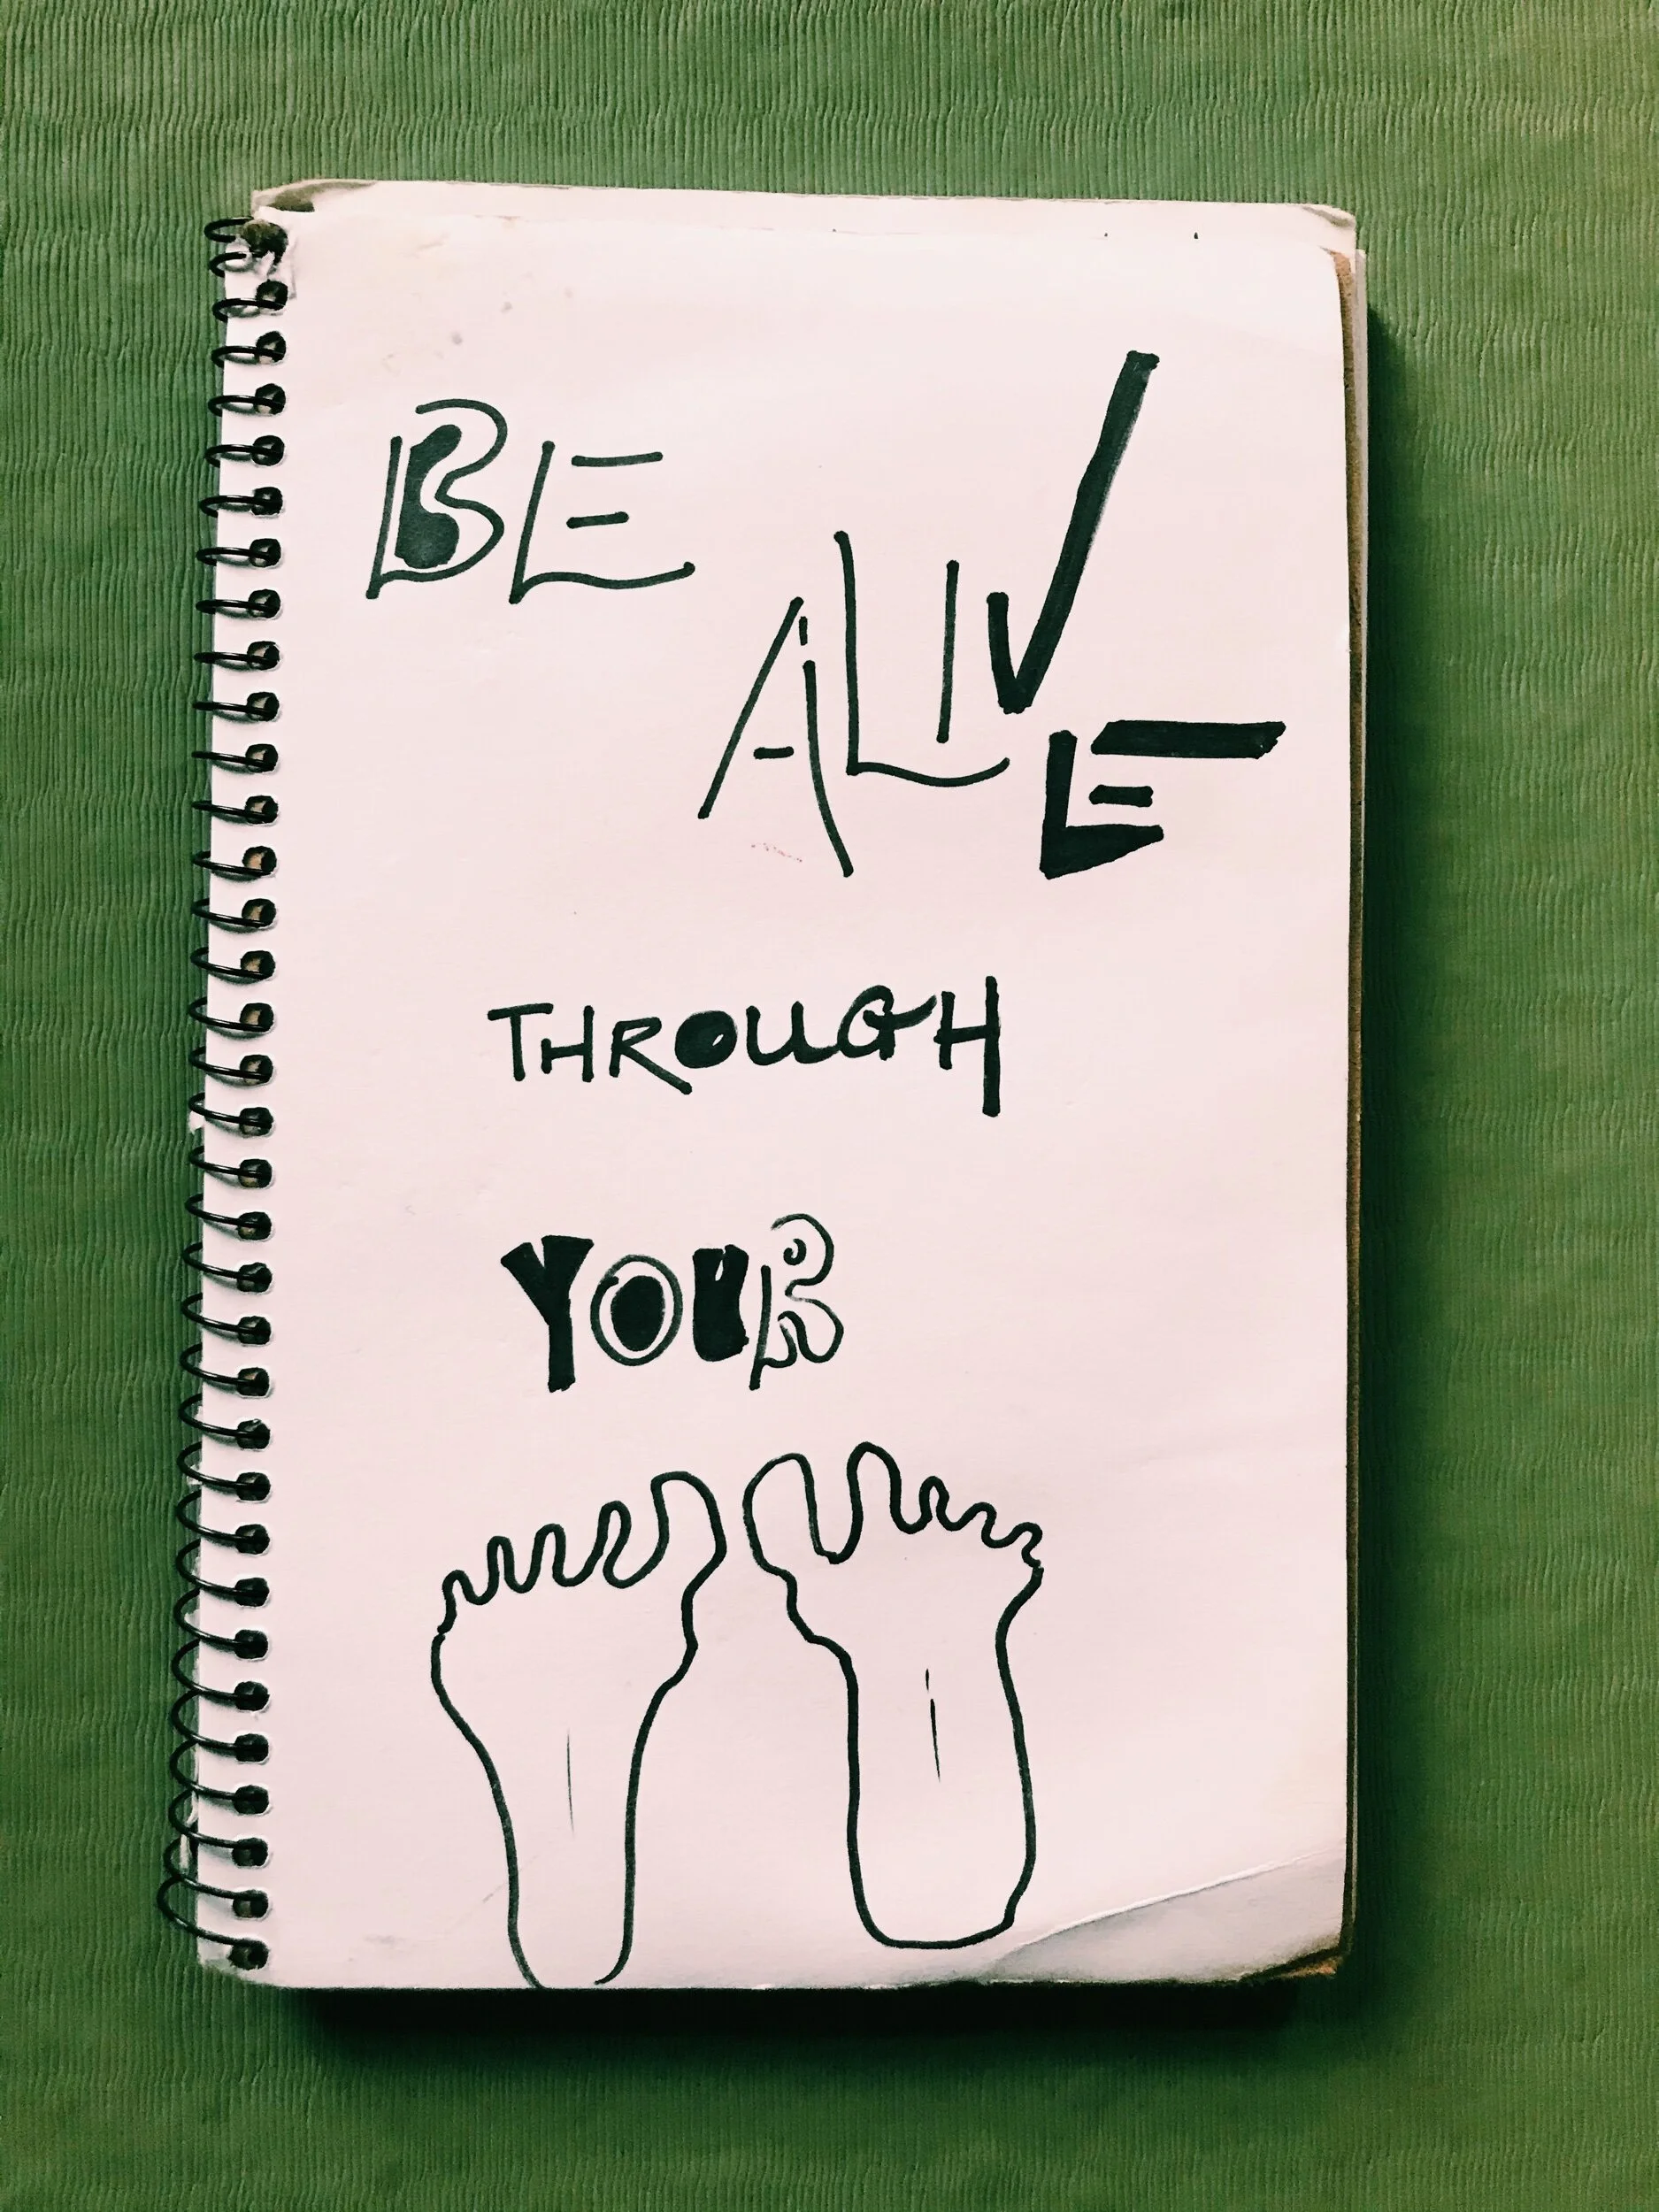 BE
ALIVE
THROUGH
YOUR